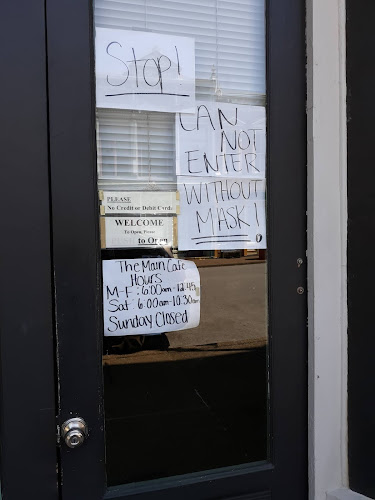 Stop!
CAN
NOT
ENTER
WITHOUT
MASK!
PLEASE
No Credit or Debit Cards
WELCOME
To Open, Please
to Open
The Main Cafe
Hours
M-F: 6:00am-12:45
Sat: 6:00am-10:30am
Sunday Closed